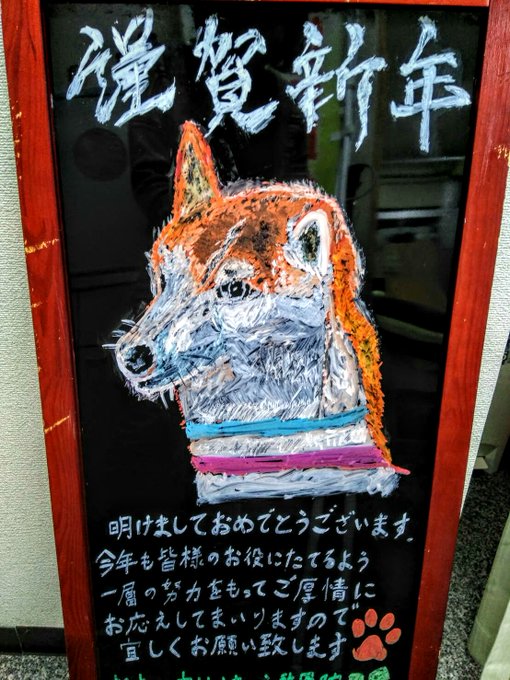 謹賀新年
明けましておめでとうございます.
今年も皆様のお役にたてるよう
一層の努力をもってご厚情に
お応えしてまいりますので
宜しくお願い致します